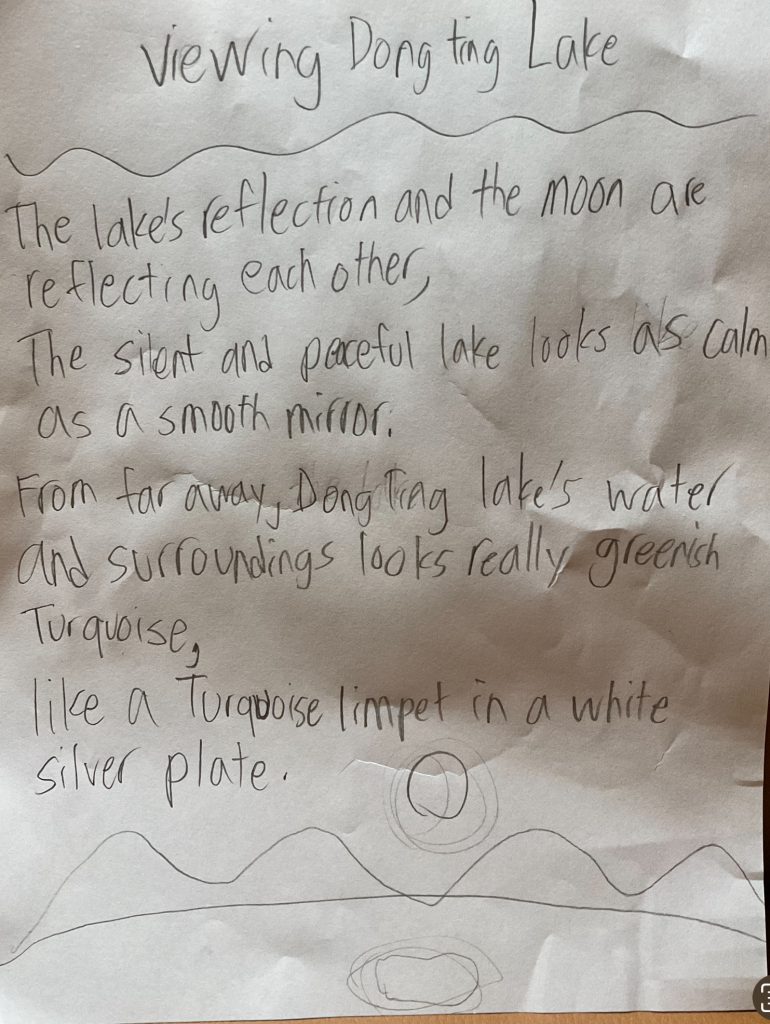 Viewing Dong ting Lake
The lake's reflection and the moon are
reflecting each other,
The silent and peaceful lake looks as calm
as a smooth mirror.
From far away, Dong Ting lake's water
and surroundings looks really greenish
Turquoise,
like a Turquoise limpet in a white
silver plate.